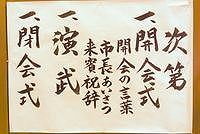 次第
一、開会式
開会の言葉
市長あいさつ
来賓祝辞
一、演武
一、閉会式